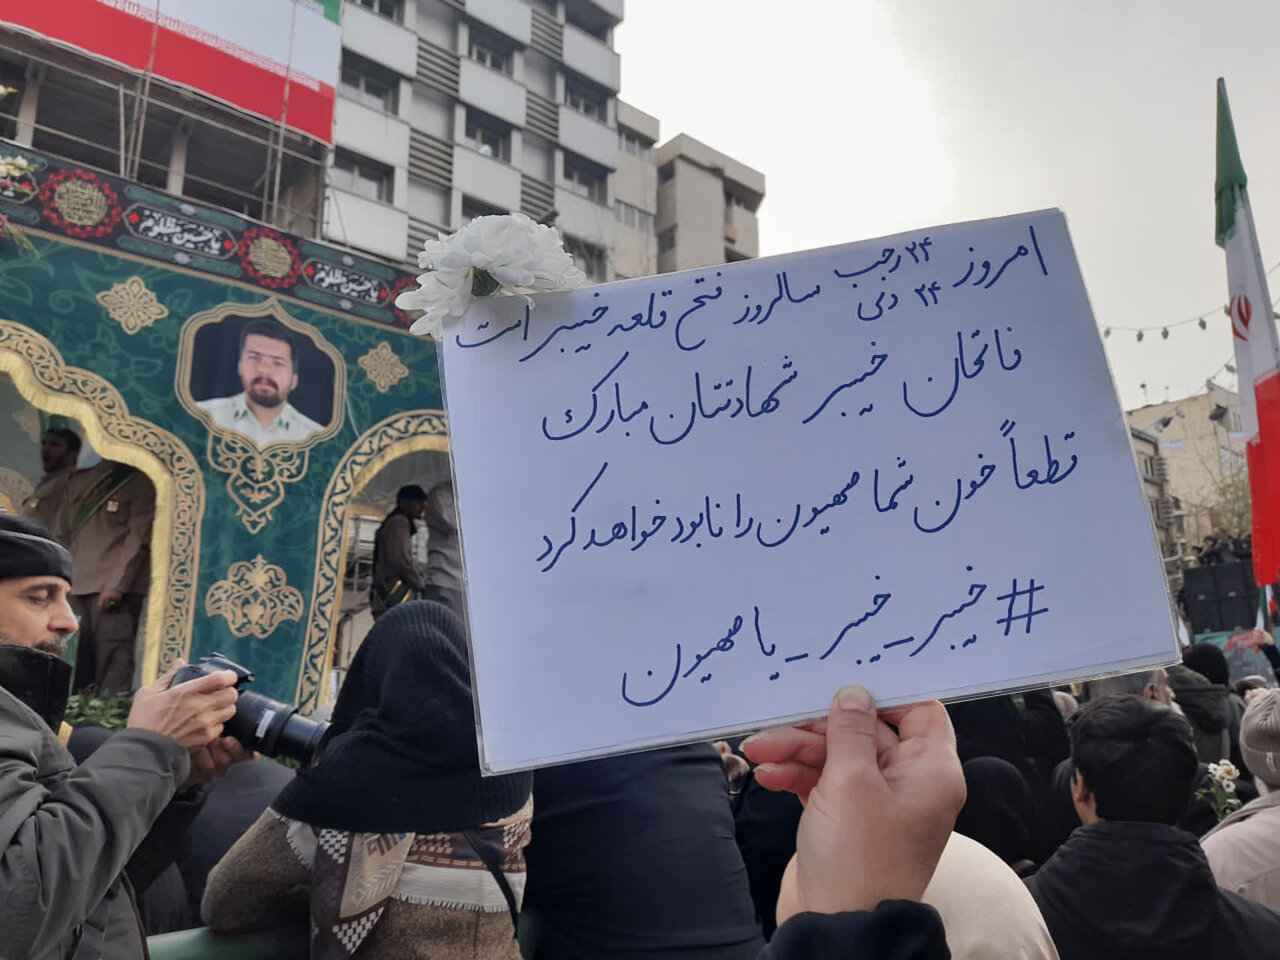 یا حسین مظلوم
یا حسین مظلوم
امروز ۲۴ رجب سالروز فتح قلعه خیبر است
۲۴ دی
فاتحان خیبر شهادتتان مبارک
قطعاً خون شما صهیون را نابود خواهد کرد
#خیبر_خیبر_یا صهیون